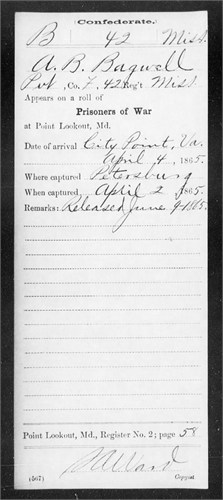 (Confederate.)
B 42 Miss.
A. B. Bagwell
Pvt, Co. F, 42 Reg't Miss.
Appears on a roll of
Prisoners of War
at Point Lookout, Md.
Date of arrival City Point, Va.
April 4, 1865.
Where captured Petersburg
When captured April 2, 1865.
Remarks: Released June 9-1865.
Point Lookout, Md., Register No. 2; page 58
Ward
(567) Copyist.